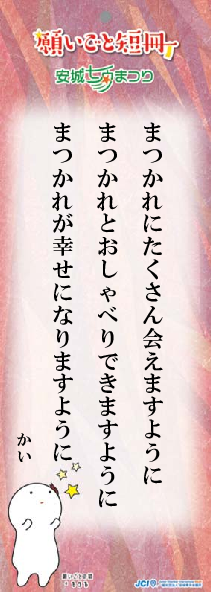 願いごと短冊
安城七夕まつり
まつかれにたくさん会えますように
まつかれとおしゃべりできますように
まつかれが幸せになりますように
かい
願いごと短冊
JCI